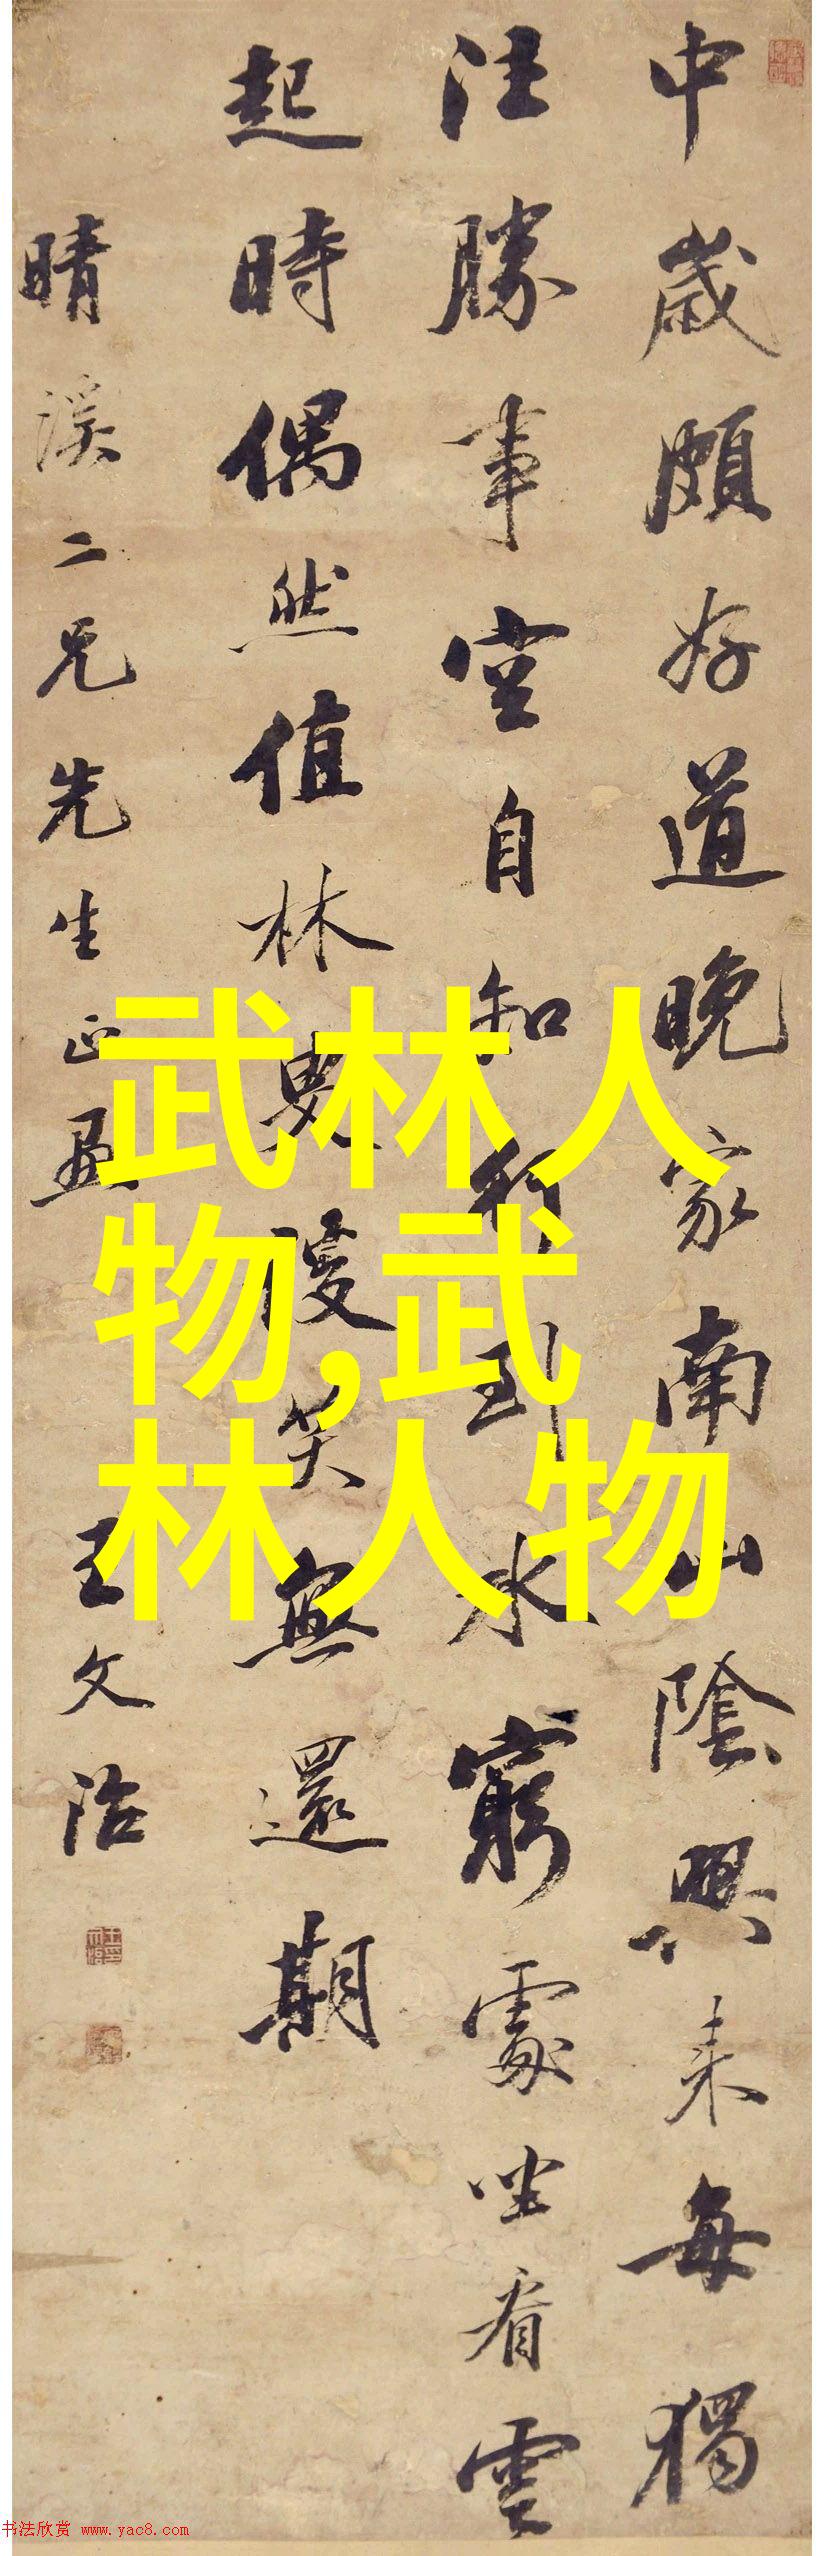 中歲頗好道晚家南山陲興来每獨
往勝事空自知行到水窮處坐看雲
起時偶然值林叟談笑無還期
晴溪二兄先生正畫
王文治
武林人
物,武
林人物
书法欣赏 www.yac8.com